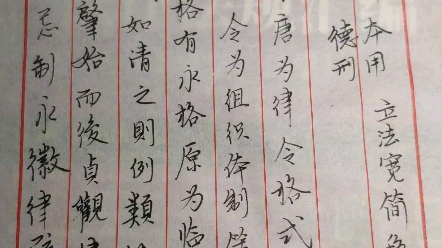 本用 立法宽简
德刑
唐为律令格式
令为组织体制
格有永格原为临
如清之则例類
肇始而後貞觀
忌制永徽律